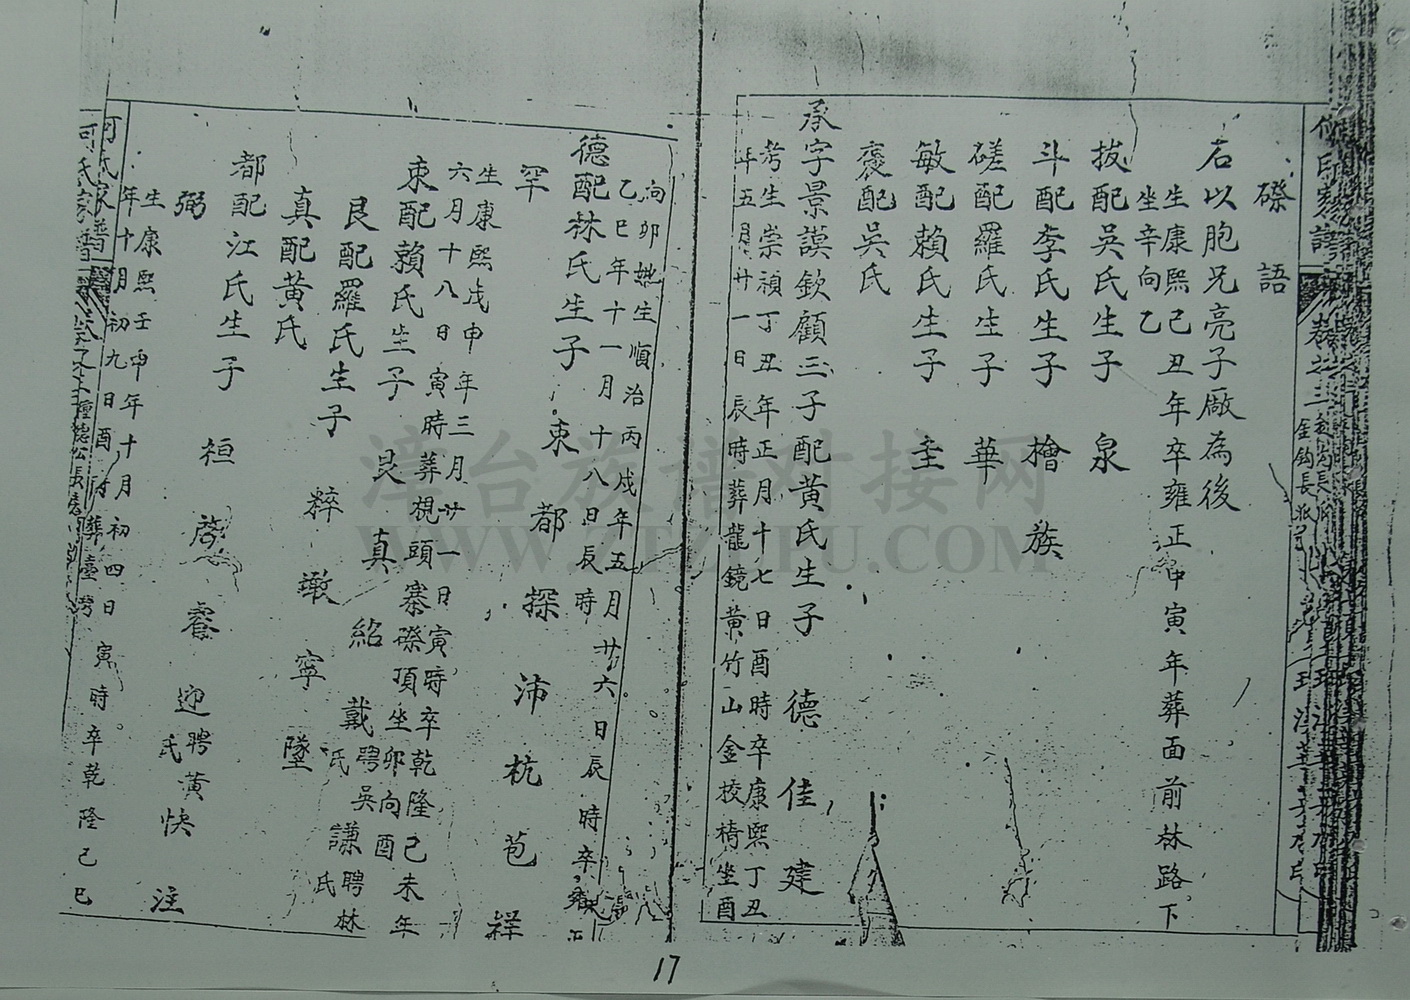 磜 語
右以胞兄亮子廠為後
生康熙己丑年卒雍正甲寅年葬面前林路下
坐辛向乙
拔配吳氏生子 泉
斗配李氏生子 檜 族
磋配羅氏生子 華
敏配賴氏生子 圭
褒配吳氏
承字景謨欽顧三子配黃氏生子 德 佳 建
考生崇禎丁丑年正月十七日酉時卒康熙丁丑
年五月廿一日辰時葬龍鏡黄竹山金校椅坐酉
向卯妣生順治丙戌年五月廿六日辰時卒雍正
乙巳年十一月十八日辰時
德配林氏生子 束 都 探 沛 杭 苞 祥
罕
生康熙戊申年三月廿一日寅時卒乾隆己未年
六月十八日寅時葬視頭寨磜頂坐卯向酉
束配賴氏生子 艮 真 紹 戴聘吳氏 謙聘林氏
艮配羅氏生子 粹 墩 寧 墜
真配黃氏
都配江氏生子 桓 啓 睿 迎聘黃氏 快 注
弼
生康熙壬申年十月初四日寅時卒乾隆己巳
年十月初九日酉時葬臺灣
17
漳台族谱对接网
WWW.ZTZUPU.COM